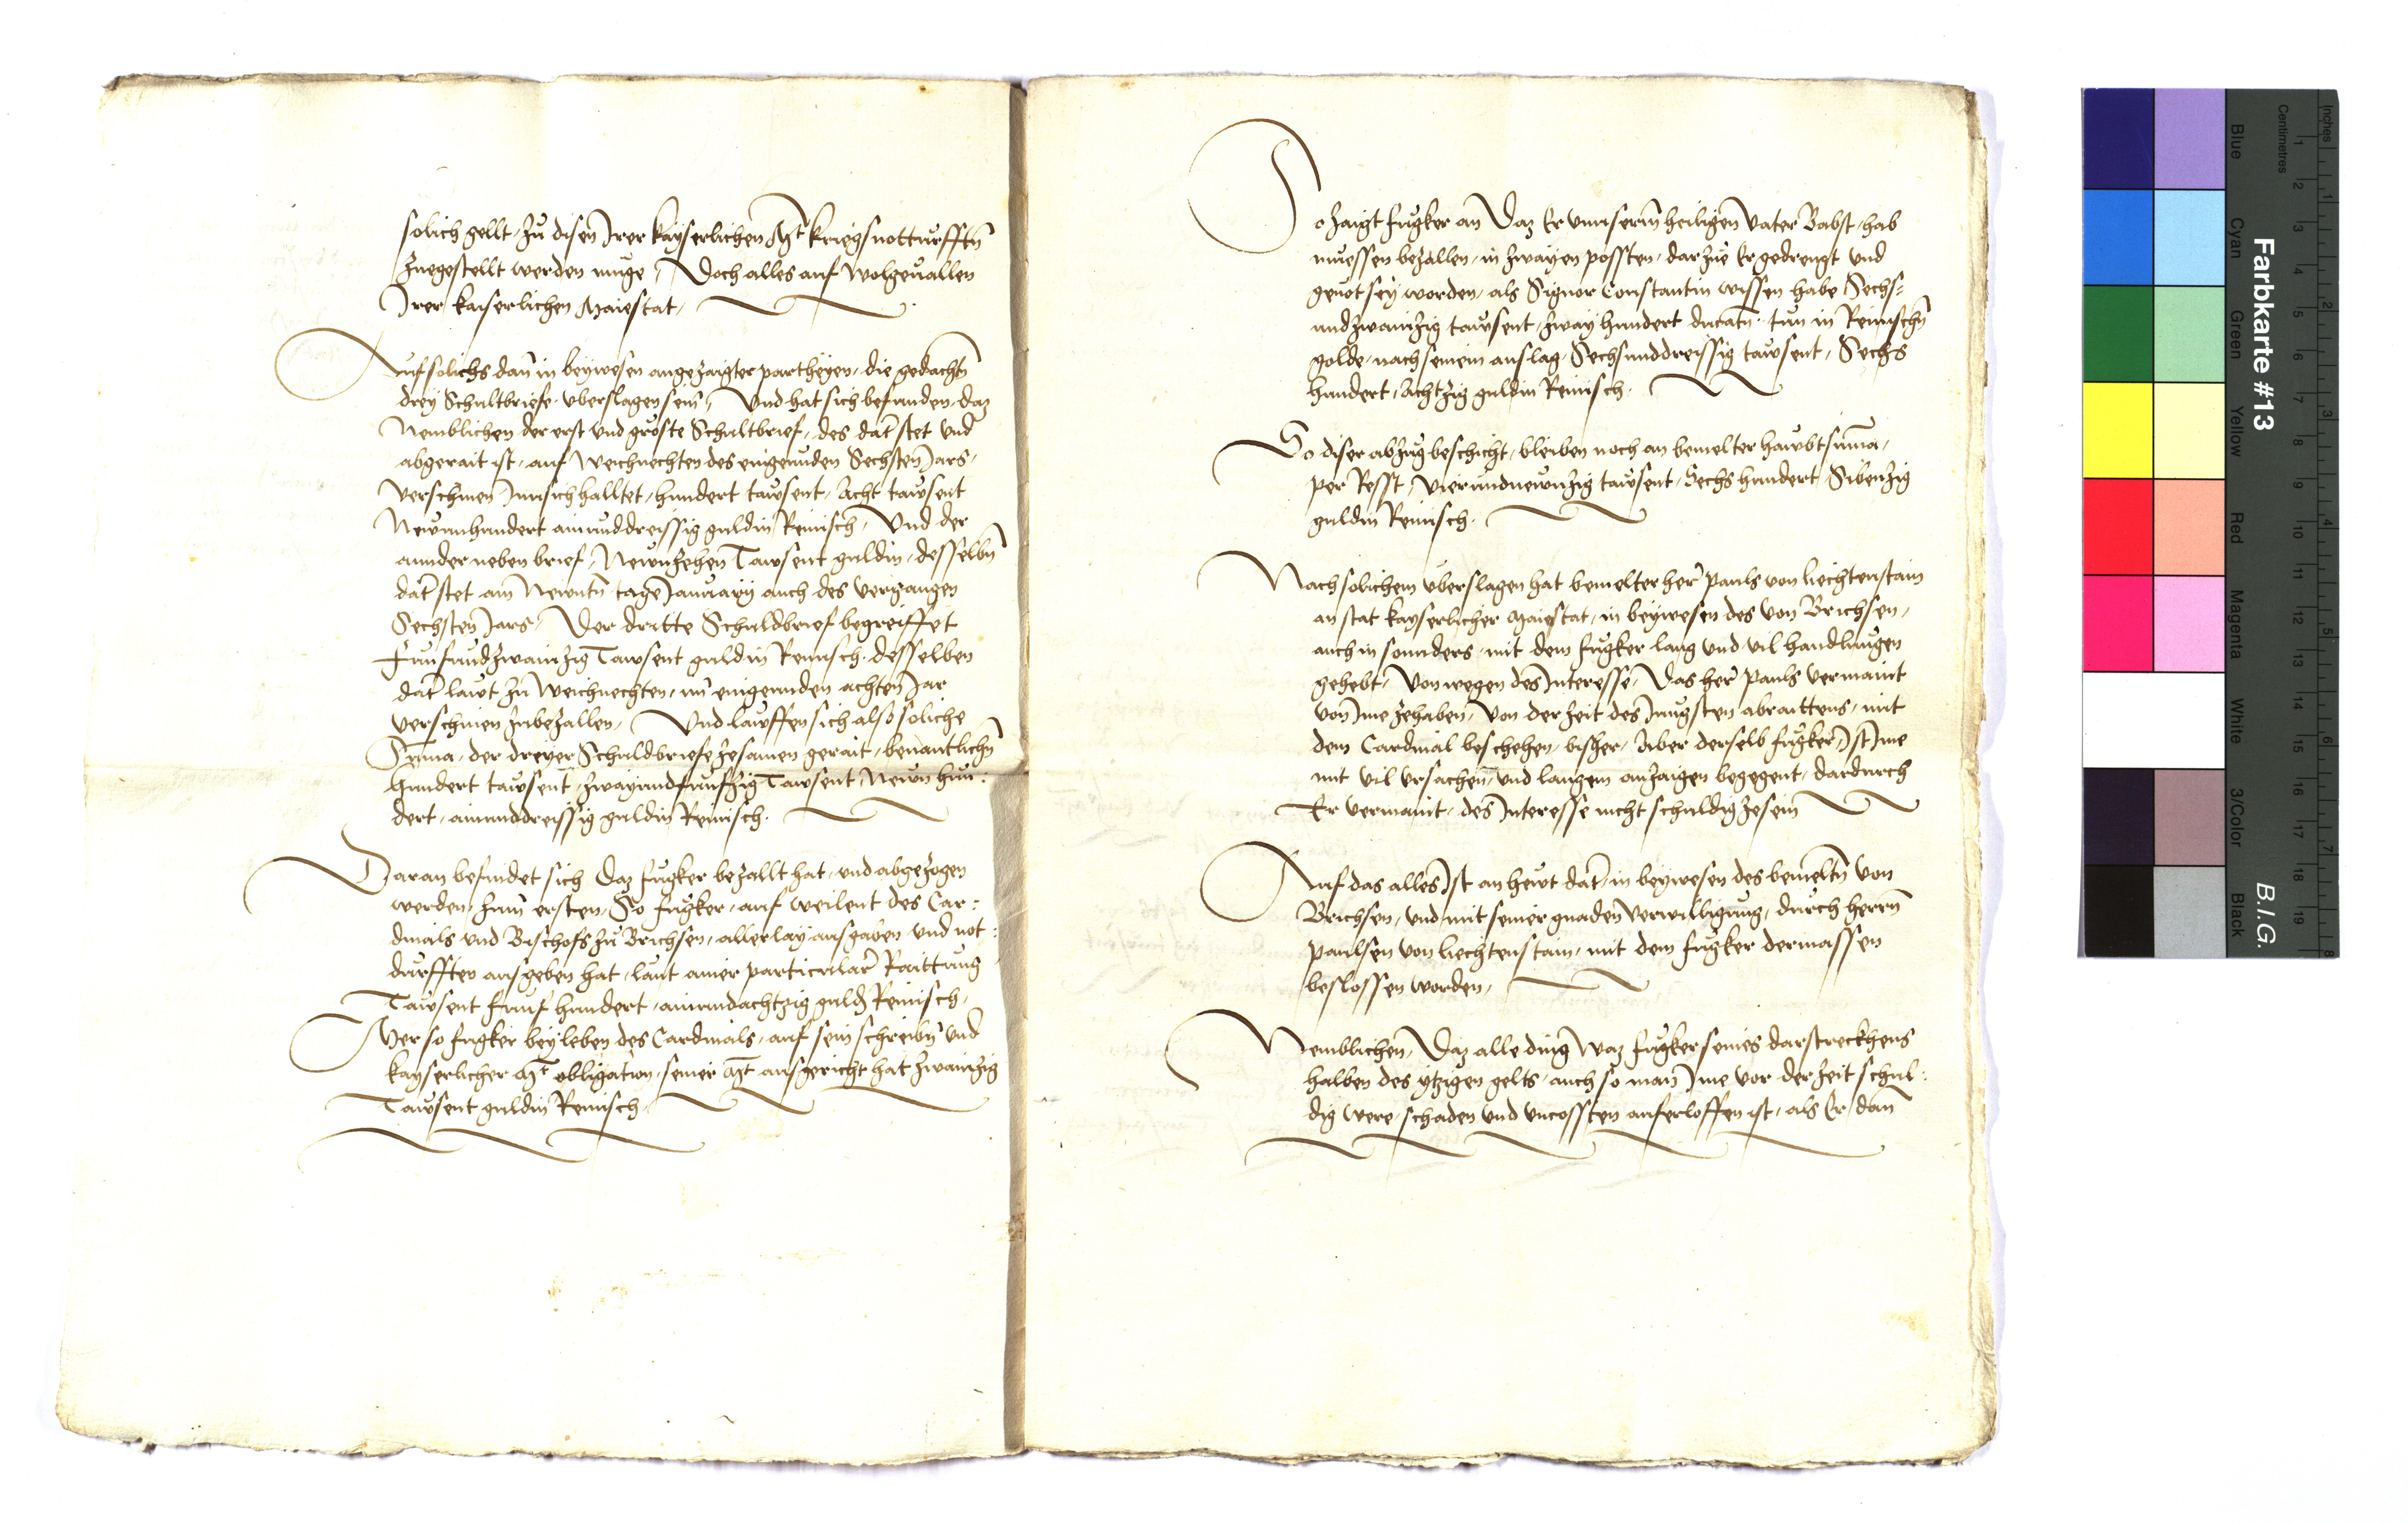 solich gellt, zu disen Irer kayserlichen Mt kriegsnotturfftn̄
zuegestellt werden muge, Doch alles auf wolgeuallen
Irer kaiserlichen Maiestat,
Auf solichs dan̄ in beywesen angezaigter partheyen, die gedachtn̄
drey Schultbriefe uberslagen sein, Und hat sich befunden, daz
Nemblichen der erst und gröste Schultbrief, des dat stet und
abgerait ist, auf Weichnechten des eingeunden Sechsten Jars,
verschinen Innsich halltet, hundert tawsent, Acht tawsent
Newnhundert ainunddreissig guldin Reinisch, Und der
annder neben brief, Newnzehen Tawsent guldin, desselbn̄
dat stet am Newntn̄ tage January auch des vergangen
Sechsten Jars, Der dritte Schuldbrief begreiffet
Funfundzwainzig Tawsent guldin Reinisch, desselben
dat lawt zu Weichnechten, im eingeunden achten Jar
verschinen zubezallen, Und lawffen sich also soliche
Suma, der dreyer Schuldbriefe zesamen gerait, benantlichn̄
hundert tawsent, zwayundfunfzig Tawsent, Newn hun:
dert, ainunddreissig guldin Reinisch.
Daran befindet sich daz fugker bezallt hat, und abgezogen
werden, zum ersten, So fugker, auf weilent des Car:
dinals und Bischofs zu Brichsen, allerlay ausgaben und not:
durfften ausgeben hat, laut ainer particular Raittung
Tawsent funf hundert, ainundachtzig guld Reinisch,
Mer so fugker bey leben des Cardinals, auf sein schreibn̄ und
kayserlicher Mt obligation, seiner Mt ausgericht hat zwainzig
Tawsent guldin Reinisch.
So zaigt fugker an Daz Er unnserm heiligen Vater Babst, hab
muessen bezallen, in zwayen possten, darzue Er gedrengt und
genot sey worden, als Signor Constantin wissen habe Sechs:
undzwainzig tawsent, zway hundert ducatn̄, tun in Reinischn̄
golde, nach seinem anslag, Sechsunddreissig tawsent, Sechs
hundert, Achtzig guldin Reinisch.
So diser abzug beschicht, bleiben noch an bemelter hawbtsuma,
per Resst, Vierundnewnzig tawsent, Sechs hundert, Sibenzig
guldin Reinisch.
Nach solichem uberslagen hat bemelter her Pauls von liechtenstain
an stat kayserlicher Maiestat, in beywesen des von Brichsen,
auch in sonnders, mit dem fugker lang und vil handlungen
gehebt, Von wegen des Interesse, Das her Pauls vermaint
von Ime zehaben, Von der zeit des Jungsten abraittens, mit
dem Cardinal beschehen, bisher, Aber derselb fugker, Ist Ime
mit vil ursachen und langem anzaigen begegent, dardurch
Er vermaint, des Interesse nicht schuldig zesein
Auf das alles Ist an hewt dat, in beywesen des bemeltn̄ von
Brichsen, und mit seiner gnaden verwilligung, durch herrn̄
Paulsen von liechtenstain, mit dem fugker dermassen
beslossen worden,
Nemblichen, Daz alle ding Waz fugker seines darstreckhens
halben des ytzigen gelts, auch so man Ime vor der zeit schul:
dig were, schaden und uncossten auferloffen ist, als Er dan
Farbkarte #13
B.I.G.
Blue
Cyan
Green
Yellow
Red
Magenta
White
3/Color
Black
Centimetres
Inches
1 2 3 4 5 6 7 8 9 10 11 12 13 14 15 16 17 18 19
1 2 3 4 5 6 7 8